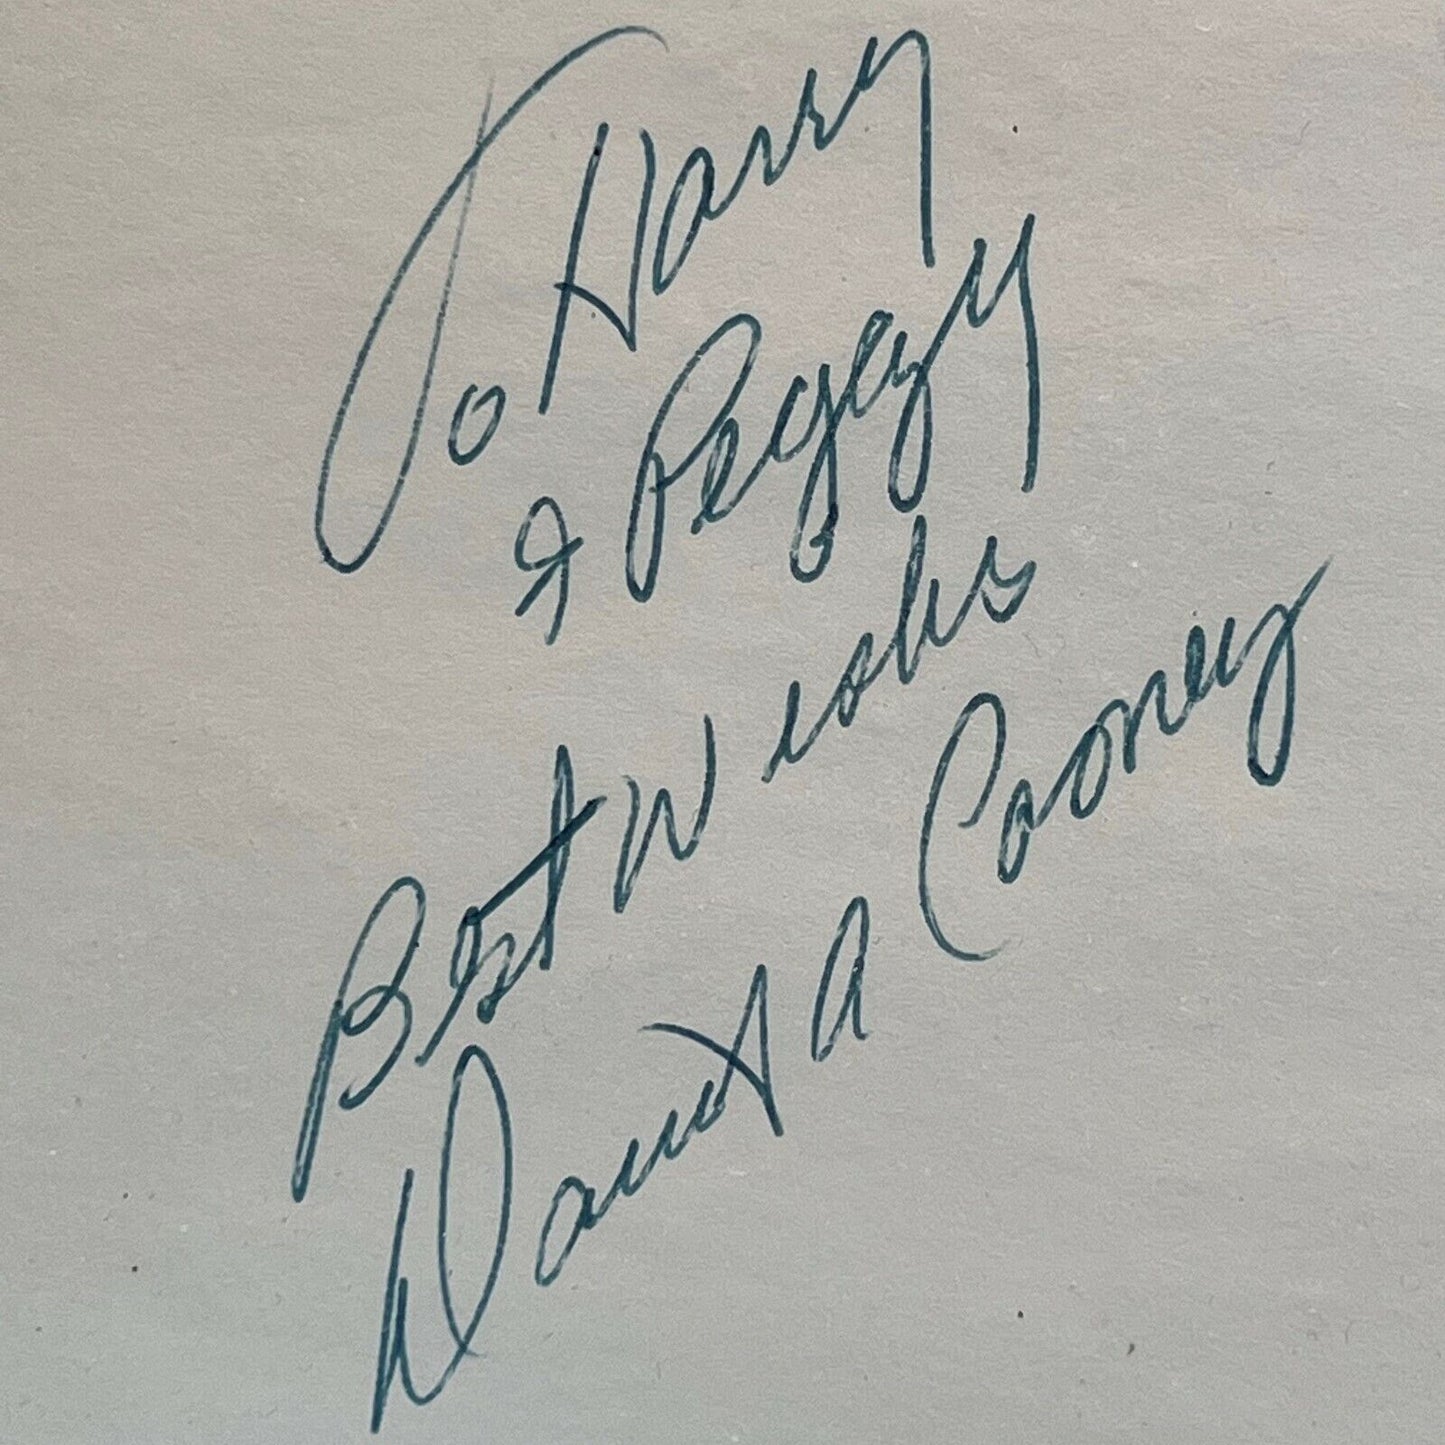 To Harry
& Peggy
Best Wishes
David A Cooney